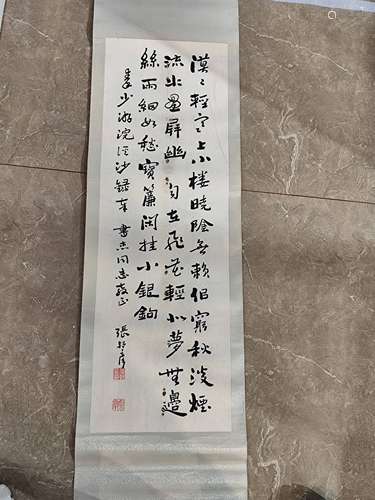 漠〻輕寒上小樓曉陰無賴侣窮秋淡煙
流水畫屏幽自在飛花輕似夢無邊
絲雨細如愁寶簾閑挂小銀鉤
秦少游浣溪沙錄奉 書杰同志教正
張